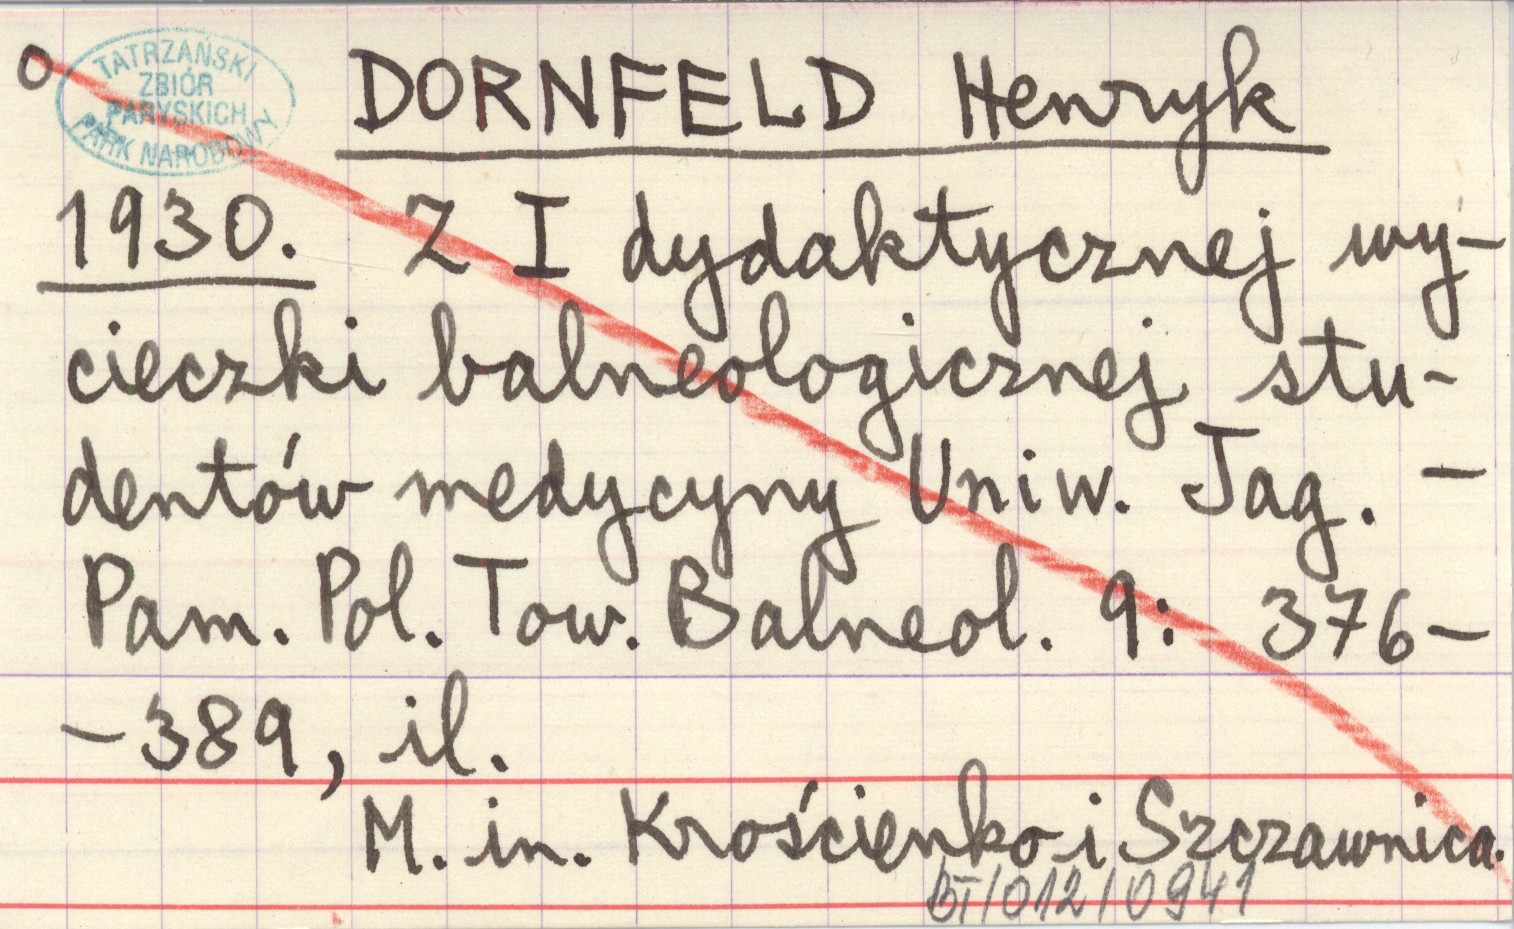 O
TATRZAŃSKI
ZBIÓR
PARYSKICH
PARK NARODOWY
DORNFELD Henryk
1930. Z I dydaktycznej wy-
cieczki balneologicznej stu-
dentów medycyny Uniw. Jag. –
Pam. Pol. Tow. Balneol. 9: 376–
–389, il.
M. in. Krościenko i Szczawnica.
BT/012/0941